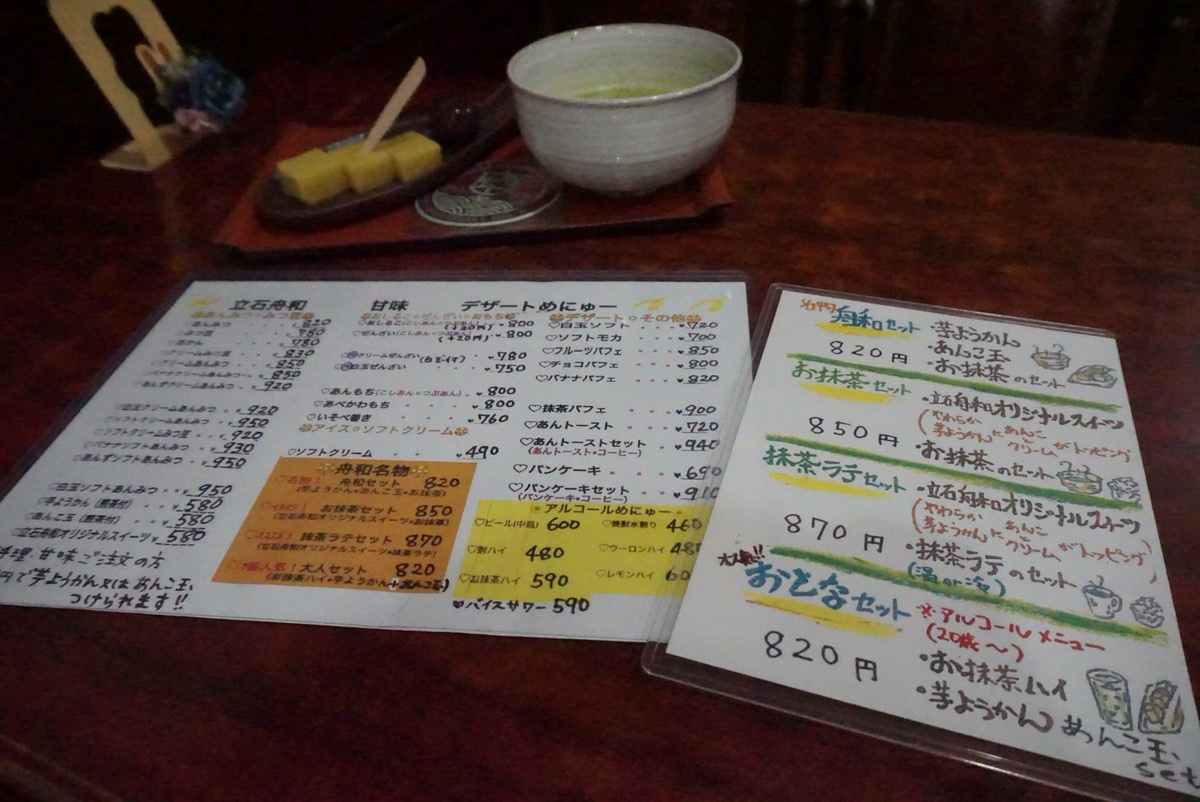 立石舟和　甘味　デザートめにゅー
あんみつ・みつ豆
あんみつ 820
780
780
クリームみつ豆 830
850
クリームあんみつ 850
あんずクリームあんみつ 920
白玉クリームあんみつ 920
ソフトクリームあんみつ 950
ソフトクリームみつ豆 920
バナナソフトあんみつ 930
あんずソフトあんみつ 950
白玉ソフトあんみつ ¥950
芋ようかん(煎茶付) ¥580
あんこ玉(煎茶付) ¥580
立石舟和オリジナルスイーツ ¥580
料理、甘味ご注文の方
円で芋ようかん又は あんこ玉、
つけられます!!
おしるこ・ぜんざい・おもち
おしるこ(こしあん ¥800
(+20円)
ぜんざい(こしあん・つぶあん) ¥800
(+20円)
クリームぜんざい (白玉付) ¥780
白玉ぜんざい ¥750
あんもち(こしあん・つぶあん) ¥800
あべかわもち ¥800
いそべ巻き ¥760
アイス・ソフトクリーム
ソフトクリーム ¥490
舟和名物
舟和セット 820
(芋ようかん+あんこ玉+お抹茶)
お抹茶セット 850
(立石舟和オリジナルスイーツ+お抹茶)
抹茶ラテセット 870
(立石舟和オリジナルスイーツ+抹茶ラテ)
1番人気! 大人セット 820
(お抹茶ハイ+芋ようかん+あんこ玉)
デザート・その他
白玉ソフト ¥720
ソフトモカ ¥700
フルーツパフェ ¥850
チョコパフェ ¥800
バナナパフェ ¥820
抹茶パフェ ¥900
あんトースト ¥720
あんトーストセット ¥940
(あんトースト+コーヒー)
パンケーキ ¥690
パンケーキセット ¥910
(パンケーキ+コーヒー)
アルコールめにゅー
ビール(中瓶) 600
焼酎水割り 460
酎ハイ 480
ウーロンハイ 48
お抹茶ハイ 590
レモンハイ 60
バイスサワー 590
舟和セット
820円
・芋ようかん
・あんこ玉
・お抹茶 のセット
お抹茶セット
850円
・立石舟和オリジナルスイーツ
(やわらか 芋ようかんに あんこ クリーム がトッピング)
・お抹茶 のセット
抹茶ラテセット
870円
・立石舟和オリジナルスイーツ
(やわらか 芋ようかんに あんこ クリーム がトッピング)
・抹茶ラテ のセット
(温 or 冷)
おとなセット
820円
※アルコールメニュー
(20歳〜)
・お抹茶ハイ
・芋ようかん
あんこ玉、
set